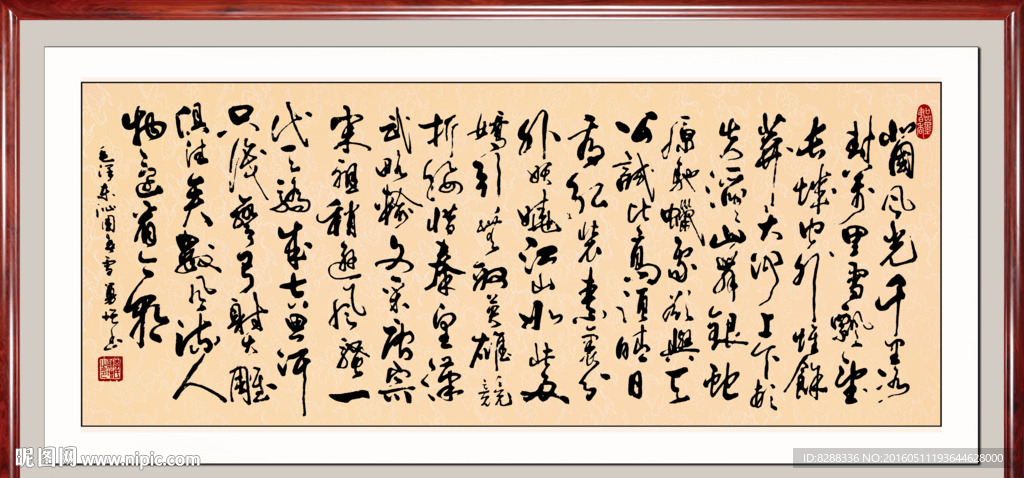 北國风光千里冰
封万里雪飄望
長城内外惟餘
莽莽大河上下頓
失滔滔山舞銀蛇
原馳蠟象欲與天
公試比高須晴日
看紅裝素裹分
外妖嬈江山如此多
嬌引無数英雄競
折腰惜秦皇漢
武略輸文采唐宗
宋祖稍遜风騷一
代天驕成吉思汗
只識彎弓射大雕
俱往矣數风流人
物還看今朝
毛澤東沁園春雪
昵图网 www.nipic.com
ID:8288336 NO:20160511193644628000